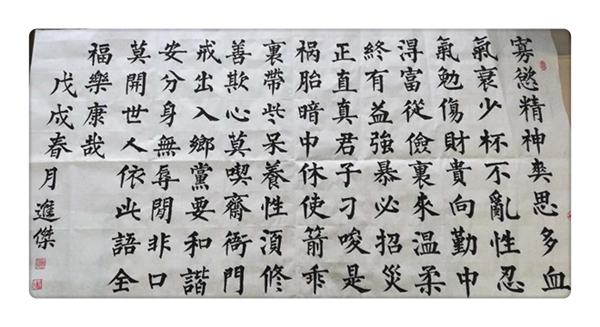 寡慾精神爽思多血
氣衰少杯不亂性忍
氣勉傷財貴向勤中
淂富從儉裏來溫柔
終有益強暴必招災
正直真君子刁唆是
祸胎暗中休使箭乖
裏帶些呆養性湏修
善欺心莫喫齋衙門
戒出入鄉黨要和諧
安分身無辱閒非口
莫開世人依此語全
福樂康哉
戊戌春月進傑